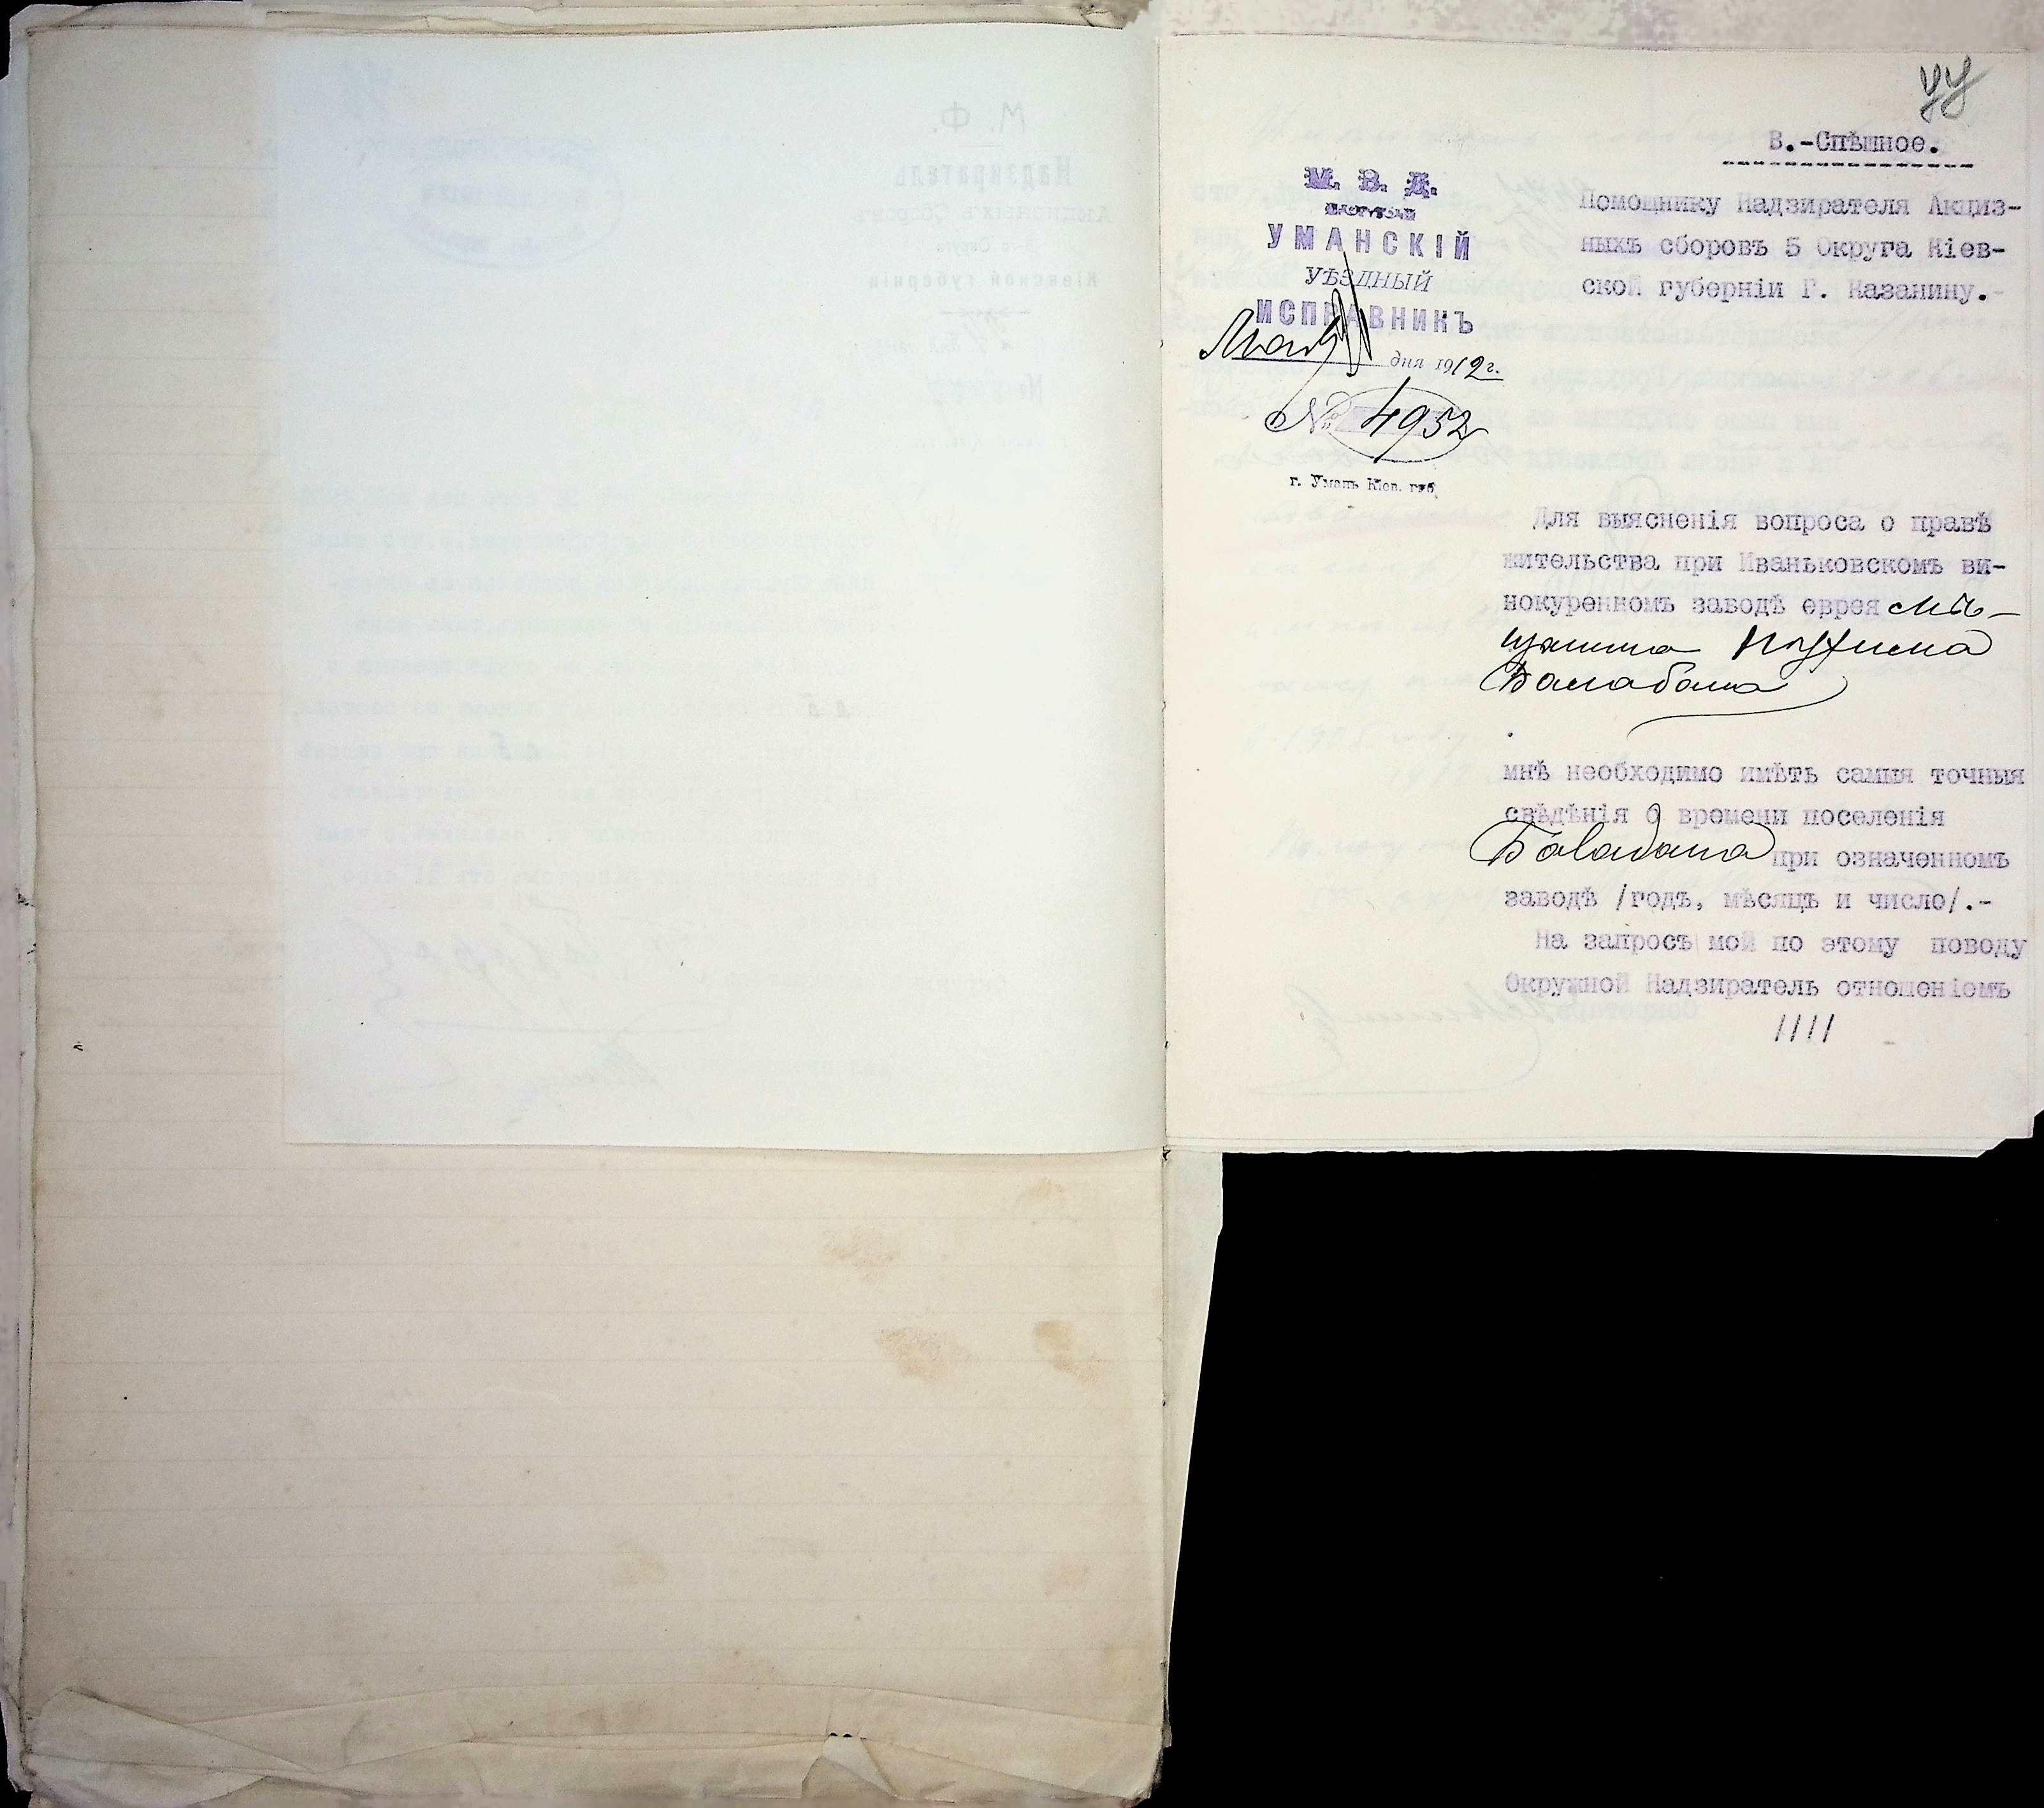 В.-Спѣшное.
М. В. Д.
УМАНСКІЙ
УѢЗДНЫЙ
ИСПРАВНИКЪ
дня 1912 г.
№ 4952
г. Умань Кіев. губ.
Помощнику Надзирателя Акциз-
ныхъ сборовъ 5 Округа Кіев-
ской губерніи Г. Казанину.-
Для выясненія вопроса о правѣ
жительства при Иваньковскомъ ви-
нокуренномъ заводѣ еврея мѣ-
щанина Нухима
Балабана
мнѣ необходимо имѣть самыя точныя
свѣдѣнія о времени поселенія
Балабана при означенномъ
заводѣ /годъ, мѣсяцъ и число/.-
На запросъ мой по этому поводу
Окружной Надзиратель отношеніемъ
////